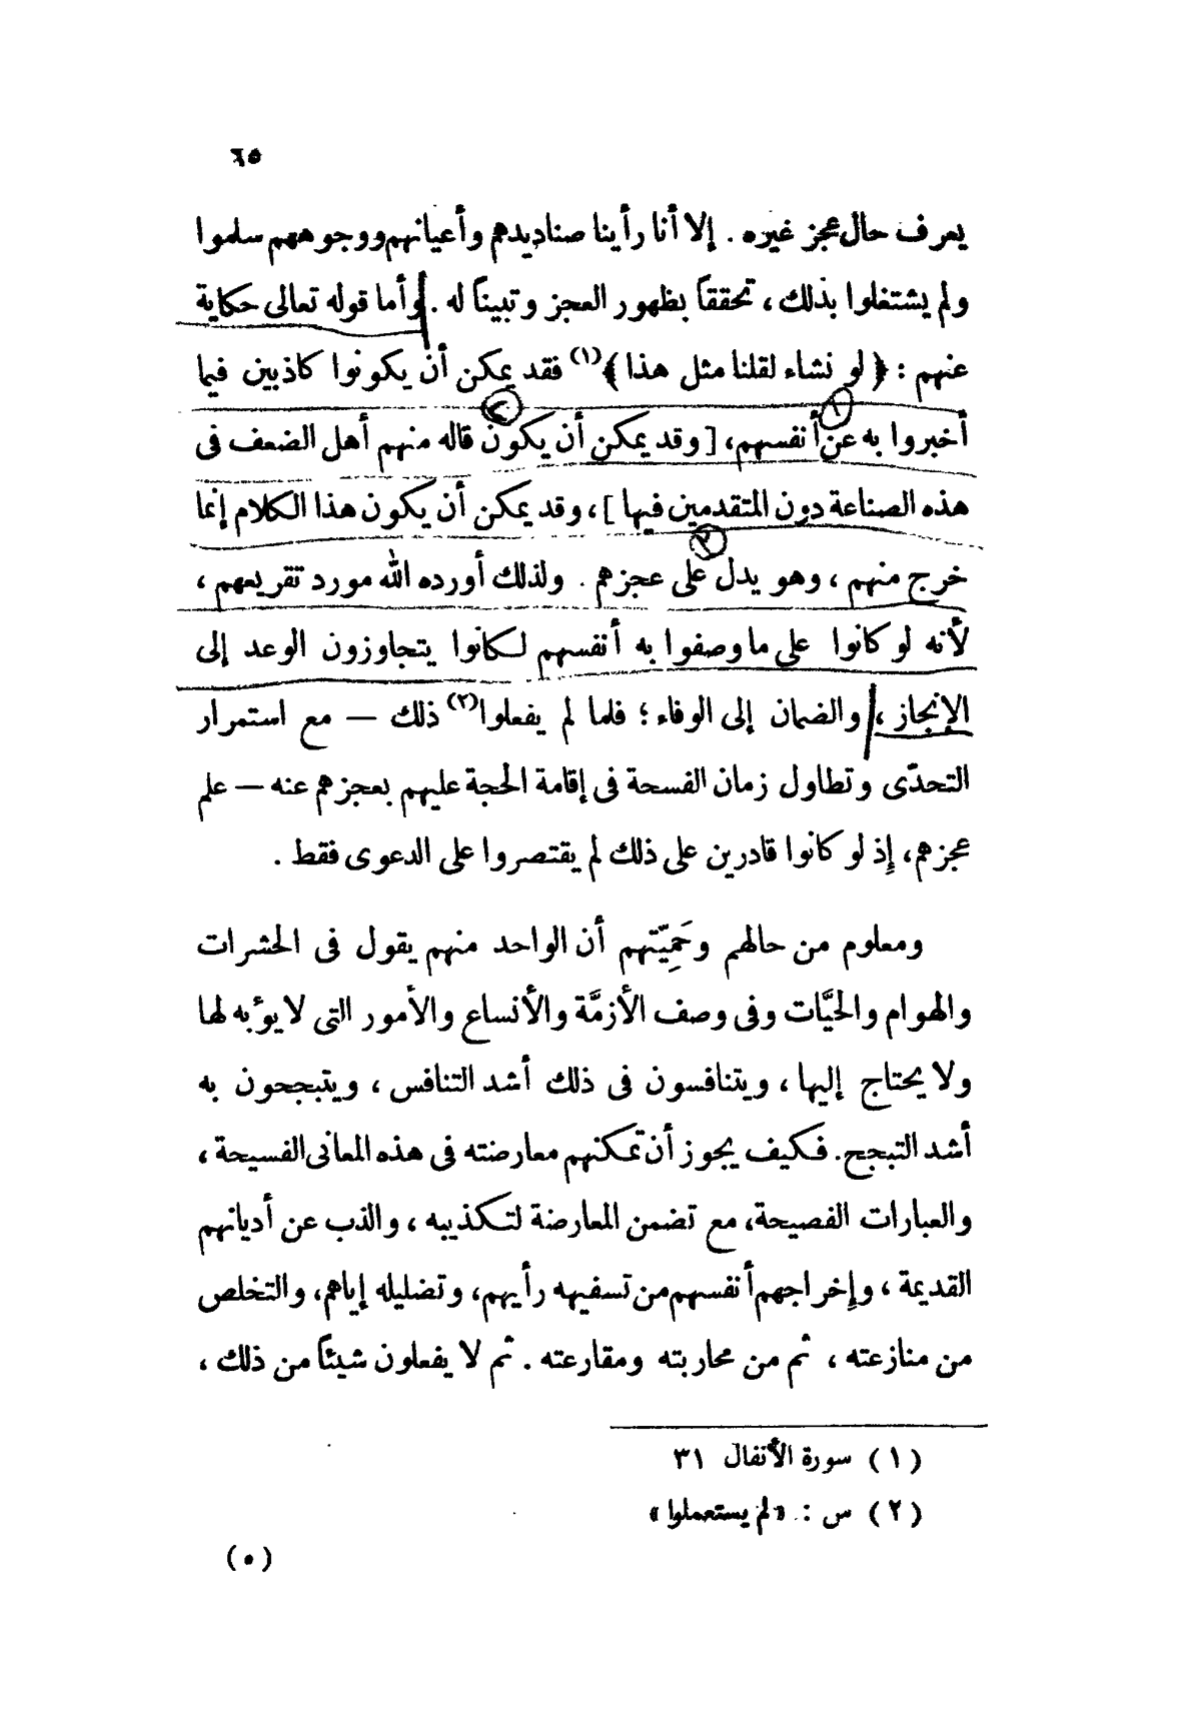 ٦٥
يعرف حال عجز غيره . إلا أنا رأينا صناديدهم وأعيانهم ووجوههم سلموا
ولم يشتغلوا بذلك ، تحققاً بظهور العجز وتبيناً له . وأما قوله تعالى حكاية
عنهم : ﴿ لو نشاء لقلنا مثل هذا ﴾(١) فقد يمكن أن يكونوا كاذبين فيما
أخبروا به عن أنفسهم ، [ وقد يمكن أن يكون قاله منهم أهل الضعف فى
هذه الصناعة دون المتقدمين فيها ] ، وقد يمكن أن يكون هذا الكلام إنما
خرج منهم ، وهو يدل على عجزهم . ولذلك أورده الله مورد تقريعهم ،
لأنه لو كانوا على ما وصفوا به أنفسهم لكانوا يتجاوزون الوعد إلى
الإنجاز ، والضمان إلى الوفاء ؛ فلما لم يفعلوا(٢) ذلك — مع استمرار
التحدّى وتطاول زمان الفسحة فى إقامة الحجة عليهم بعجزهم عنه — علم
عجزهم ، إذ لو كانوا قادرين على ذلك لم يقتصروا على الدعوى فقط .
ومعلوم من حالهم وحَمِيّتهم أن الواحد منهم يقول فى الحشرات
والهوام والحيَّات وفى وصف الأزمَّة والأنساع والأمور التى لا يؤبه لها
ولا يحتاج إليها ، ويتنافسون فى ذلك أشد التنافس ، ويتبجحون به
أشد التبجح . فكيف يجوز أن تمكنهم معارضته فى هذه المعانى الفسيحة ،
والعبارات الفصيحة ، مع تضمن المعارضة لتكذيبه ، والذب عن أديانهم
القديمة ، وإخراجهم أنفسهم من تسفيهه رأيهم ، وتضليله إياهم ، والتخلص
من منازعته ، ثم من محاربته ومقارعته . ثم لا يفعلون شيئاً من ذلك ،
(١) سورة الأنفال ٣١
(٢) س : « لم يستعملوا »
(٥)